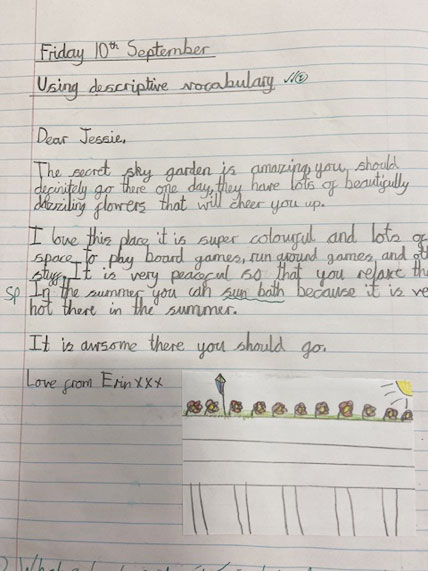 Friday 10th September
Using descriptive vocabulary
Dear Jessie,
The secret sky garden is amazing you, should
definitely go there one day, they have lots of beautifully
dazziling flowers that will cheer you up.
I love this place it is super colourful and lots of
space to play board games, run around games, and
stuff. It is very peaceful so that you relaxe
Sp In the summer you can sun bath because it is
hot there in the summer.
It is awsome there you should go.
Love from Erin xxx